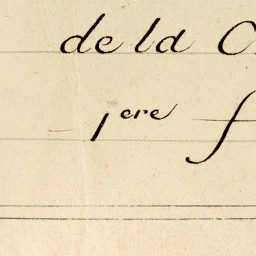 de la
1ere